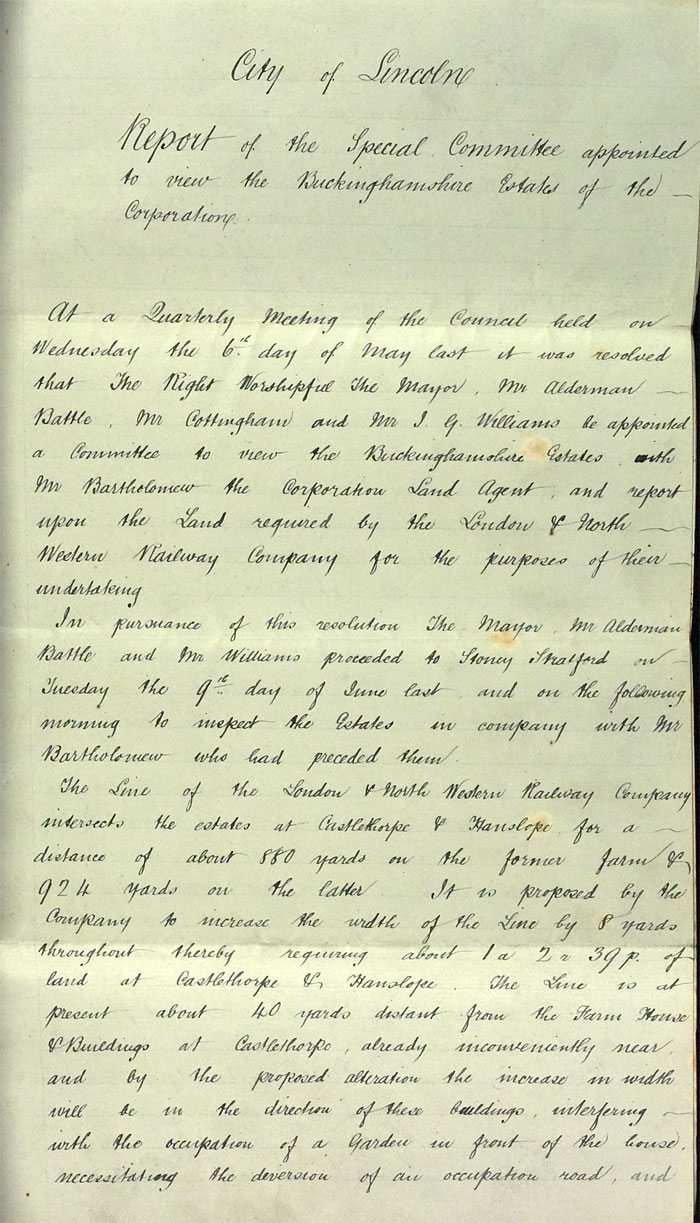 City of Lincoln
Report of the Special Committee appointed
to view the Buckinghamshire Estates of the —
Corporation.
At a Quarterly Meeting of the Council held on
Wednesday the 6th day of May last it was resolved
that The Right Worshipful The Mayor, Mr Alderman —
Battle, Mr Cottingham and Mr J. G. Williams be appointed
a Committee to view the Buckinghamshire Estates with
Mr Bartholomew the Corporation Land Agent, and report
upon the Land required by the London & North —
Western Railway Company for the purposes of their —
undertaking
In pursuance of this resolution The Mayor, Mr Alderman
Battle and Mr Williams proceeded to Stoney Stratford on —
Tuesday the 9th day of June last and on the following
morning to inspect the Estates in company with Mr
Bartholomew who had preceded them.
The Line of the London & North Western Railway Company
intersects the estates at Castlethorpe & Hanslope for a —
distance of about 880 yards on the former farm &
924 yards on the latter. It is proposed by the
Company to increase the width of the Line by 8 yards
throughout thereby requiring about 1a 2r 39p. of
land at Castlethorpe & Hanslope. The Line is at
present about 40 yards distant from the Farm House
& Buildings at Castlethorpe, already inconveniently near,
and by the proposed alteration the increase in width
will be in the direction of these buildings, interfering —
with the occupation of a Garden in front of the house,
necessitating the deversion of an occupation road, and